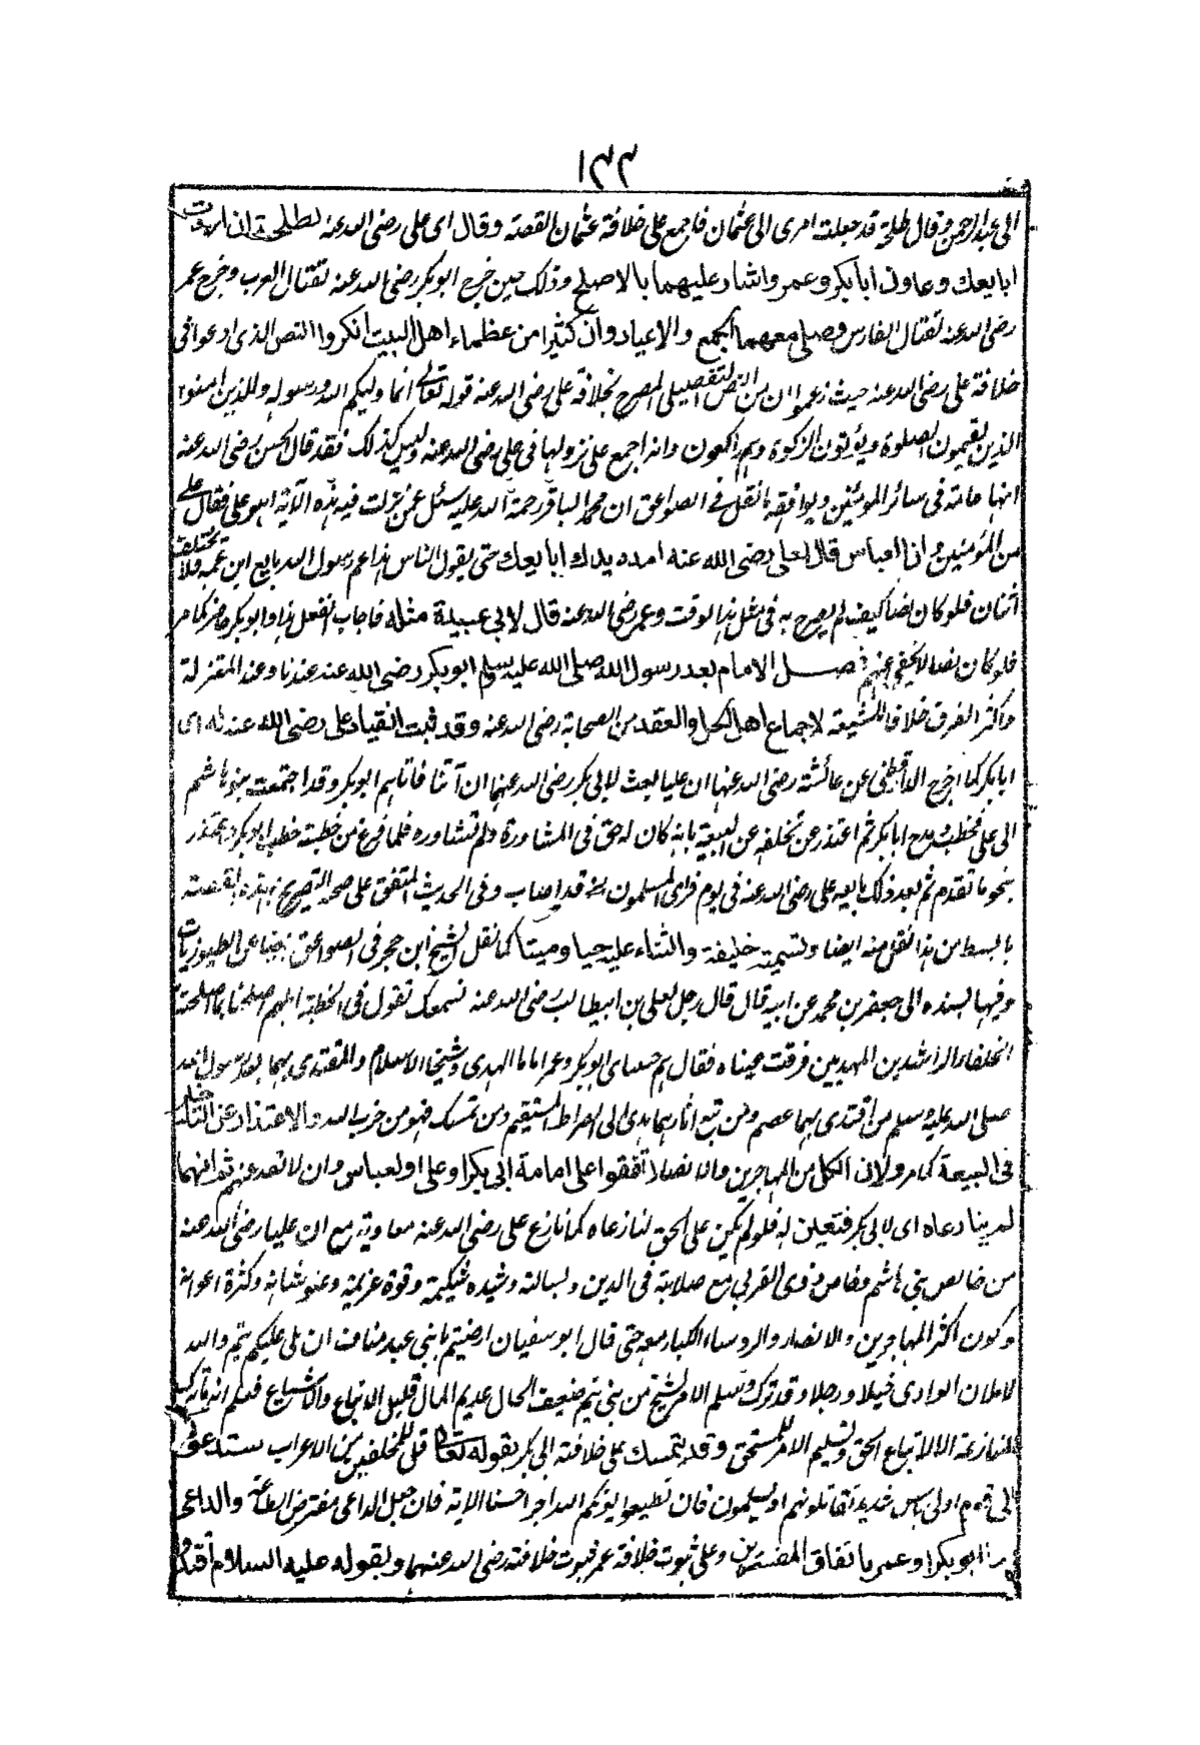 ١٣٣
الى عبد الرحمن وقال طلحة قد جعلت امرى الى عثمان فاجمع على خلافة عثمان القصة وقال اى على رضى الله عنه لطلحة ان اردت
ابايعك وعاون ابابكر وعمر واشار عليهما بالاصلح وذلك حين خرج ابوبكر رضى الله عنه لقتال العرب وخرج عمر
رضى الله عنه لقتال الفارس وصلى معهما الجمع والاعياد وان كثيرا من عظماء اهل البيت انكروا النص الذى ادعوا فى
خلافة على رضى الله عنه حيث زعموا ان من النص التفصيلى المصرح بخلافة على رضى الله عنه قوله تعالى انما وليكم الله ورسوله والذين امنوا
الذين يقيمون الصلوة ويؤتون الزكوة وهم راكعون وانه اجمع على نزولها فى على رضى الله عنه وليس كذلك فقد قال الحسن رضى الله عنه
انها عامة فى سائر المومنين ويوافقه ما نقل فى الصواعق ان محمد الباقر رحمة الله عليه سئل عمن نزلت فيه هذه الآية اهو على فقال على
من المؤمنين وان العباس قال لعلى رضى الله عنه امدد يدك ابايعك حتى يقول الناس هذا عم رسول الله بايع ابن عمه فلا يختلف
اثنان فلو كان نصا كيف لم يصرح به فى مثل هذا الوقت وعمر رضى الله عنه قال لابى عبيدة مثله فاجاب اتفعل هذا وابوبكر حاضر كما مر
فلو كان نصا لا يخفى عنهم فصل الامام بعد رسول الله صلى الله عليه وسلم ابوبكر رضى الله عنه عندنا وعند المعتزلة
واكثر الفرق خلافا للشيعة لاجماع اهل الحل والعقد من الصحابة رضى الله عنه وقد ثبت انقياد على رضى الله عنه له اى
ابابكر كما اخرج الدارقطنى عن عائشة رضى الله عنها ان عليا بعث لابى بكر رضى الله عنهما ان آتنا فاتاهم ابوبكر وقد اجتمعت بنو هاشم
الى على فخطب ومدح ابابكر ثم اعتذر عن تخلفه عن البيعة بانه كان له حق فى المشاورة ولم تشاوره فلما فرغ من خطبته خطب ابوبكر واعتذر
بنحو ما تقدم ثم بعد ذلك بايعه على رضى الله عنه فى يوم فرأى المسلمون انه قد اصاب وفى الحديث المتفق على صحته التصريح بهذه القصة
بالبسط من هذا نقل منه ايضا وتسميته خليفة والثناء عليه حيا وميتا كما نقل الشيخ ابن حجر فى الصواعق ايضا عن الطيوريات
وفيها بسنده الى جعفر بن محمد عن ابيه قال قال رجل لعلى بن ابيطالب رضى الله عنه نسمعك تقول فى الخطبة اللهم اصلحنا بما اصلحت به
الخلفاء الراشدين المهديين فرقت عيناه فقال هم حبيباى ابوبكر وعمر اماما الهدى وشيخا الاسلام والمقتدى بهما بعد رسول الله
صلى الله عليه وسلم من اقتدى بهما عصم ومن تبع آثارهما هدى الى الصراط المستقيم ومن تمسك فهو من حزب الله والاعتذار عن التخلف
فى البيعة كما مر ولان الكل من المهاجرين والانصار اتفقوا على امامة ابى بكر او على او العباس وان لا تعد عنهم ثم انهما
لم ينازعاه اى لابى بكر فتعين له فلو لم يكن على الحق لنازعاه كما نازع على رضى الله عنه معاوية مع ان عليا رضى الله عنه
من خالص بنى هاشم وخاص ذوى القربى مع صلابة فى الدين وبسالة وشدة شكيمة وقوة عزيمة وعلو شانه وكثرة اعوانه
وكون اكثر المهاجرين والانصار والروساء الكبار معه حتى قال ابوسفيان ارضيتم يا بنى عبد مناف ان يلى عليكم تيم والله
لاملأن الوادى خيلا ورجلا وقد ترك وسلم الامر لشيخ من بنى تيم ضعيف الحال عديم المال قليل الاتباع والاشياع فعلم انه تارك
المنازعة الا لاتباع الحق وتسليم الامر للمستحق وقد يتمسك على خلافة ابى بكر بقوله تعالى قل للمخلفين من الاعراب ستدعون
الى قوم اولى باس شديد تقاتلونهم او يسلمون فان تطيعوا يؤتكم الله اجرا حسنا الاية فان جعل الداعى مفترض الطاعة والداعى
ابوبكر او عمر باتفاق المفسرين وعلى ثبوت خلافة عمر ثبوت خلافته رضى الله عنهما وبقوله عليه السلام اقتدوا